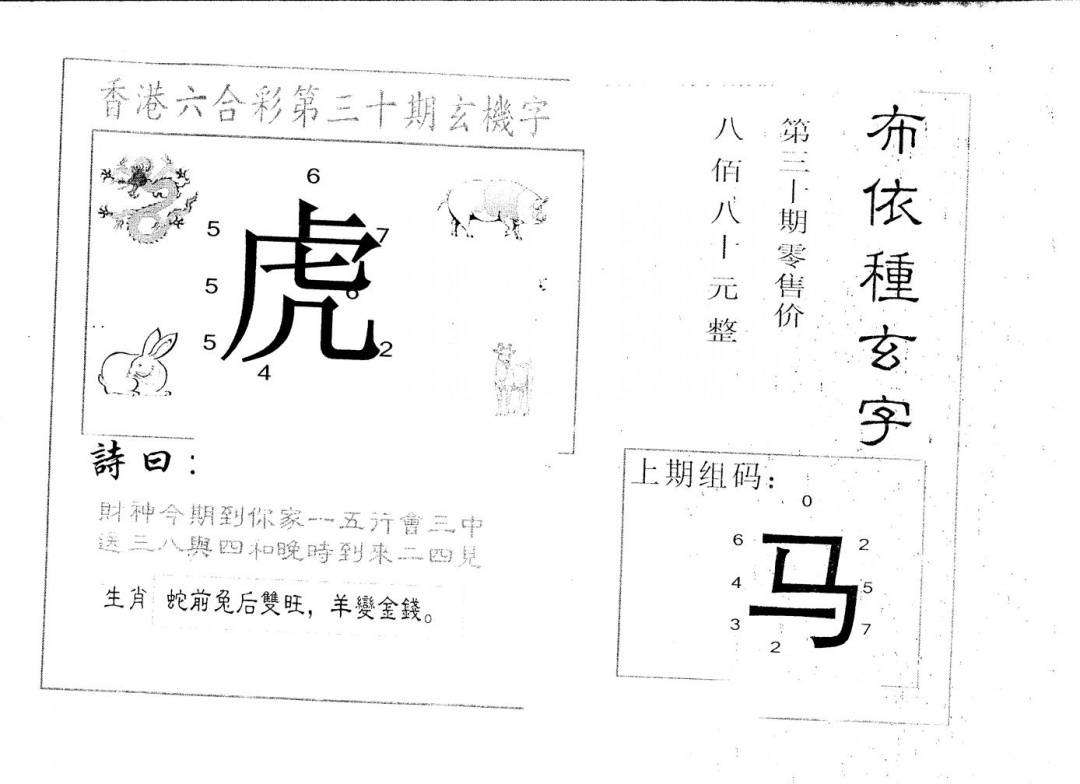 香港六合彩第三十期玄機字
6
5
7
虎
5
6
5
2
4
詩曰：
財神今期到你家一五行會三中
送三八與四和晚時到來二四見
生肖 蛇前兔后雙旺，羊變金錢。
布依種玄字
第三十期零售价
八佰八十元整
上期组码：
0
6
2
马
4
5
3
7
2